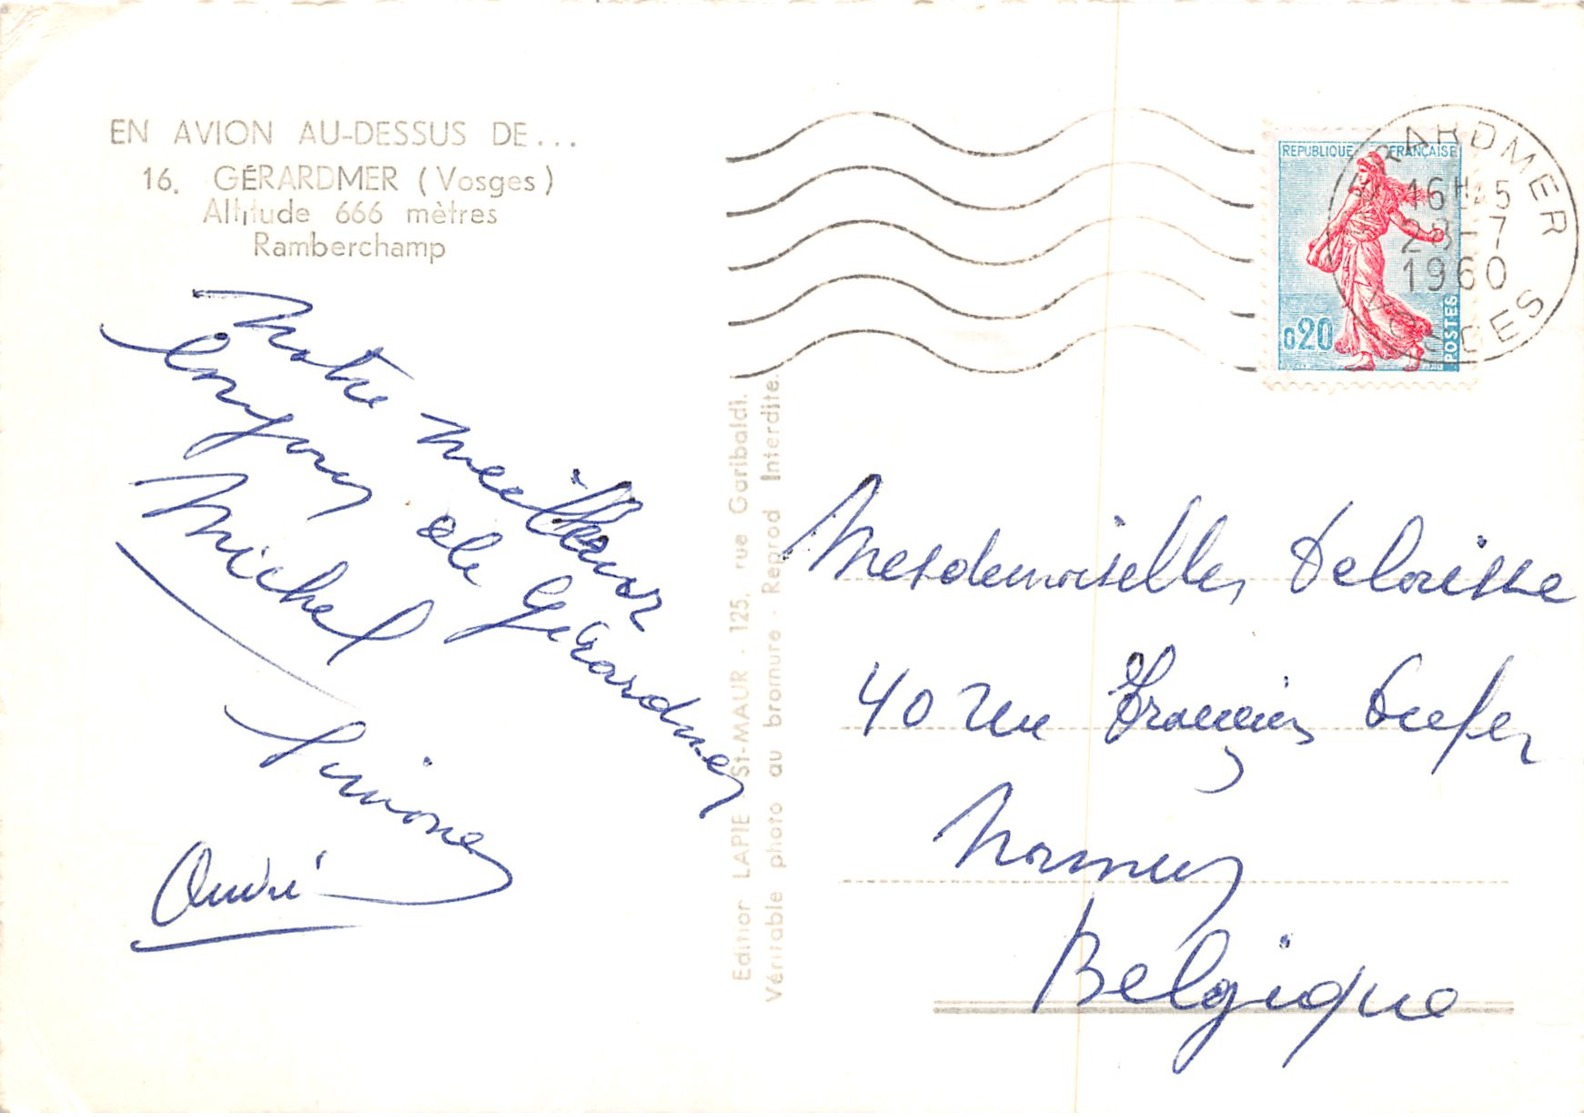 EN AVION AU-DESSUS DE...
16. GÉRARDMER (Vosges)
Altitude 666 mètres
Ramberchamp
Notre meilleur
bonjour de Gérardmer
Michel
Simone
André
Edition LAPIE St-MAUR - 125, rue Garibaldi.
Véritable photo au bromure - Reprod Interdite.
REPUBLIQUE FRANÇAISE
0,20
POSTES
GÉRARDMER
16H45
28-7
1960
VOSGES
Mesdemoiselles
40 rue François
Belgique